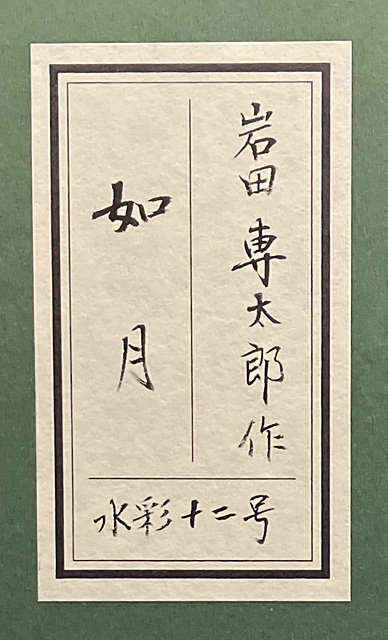 岩田専太郎作
如月
水彩十二号